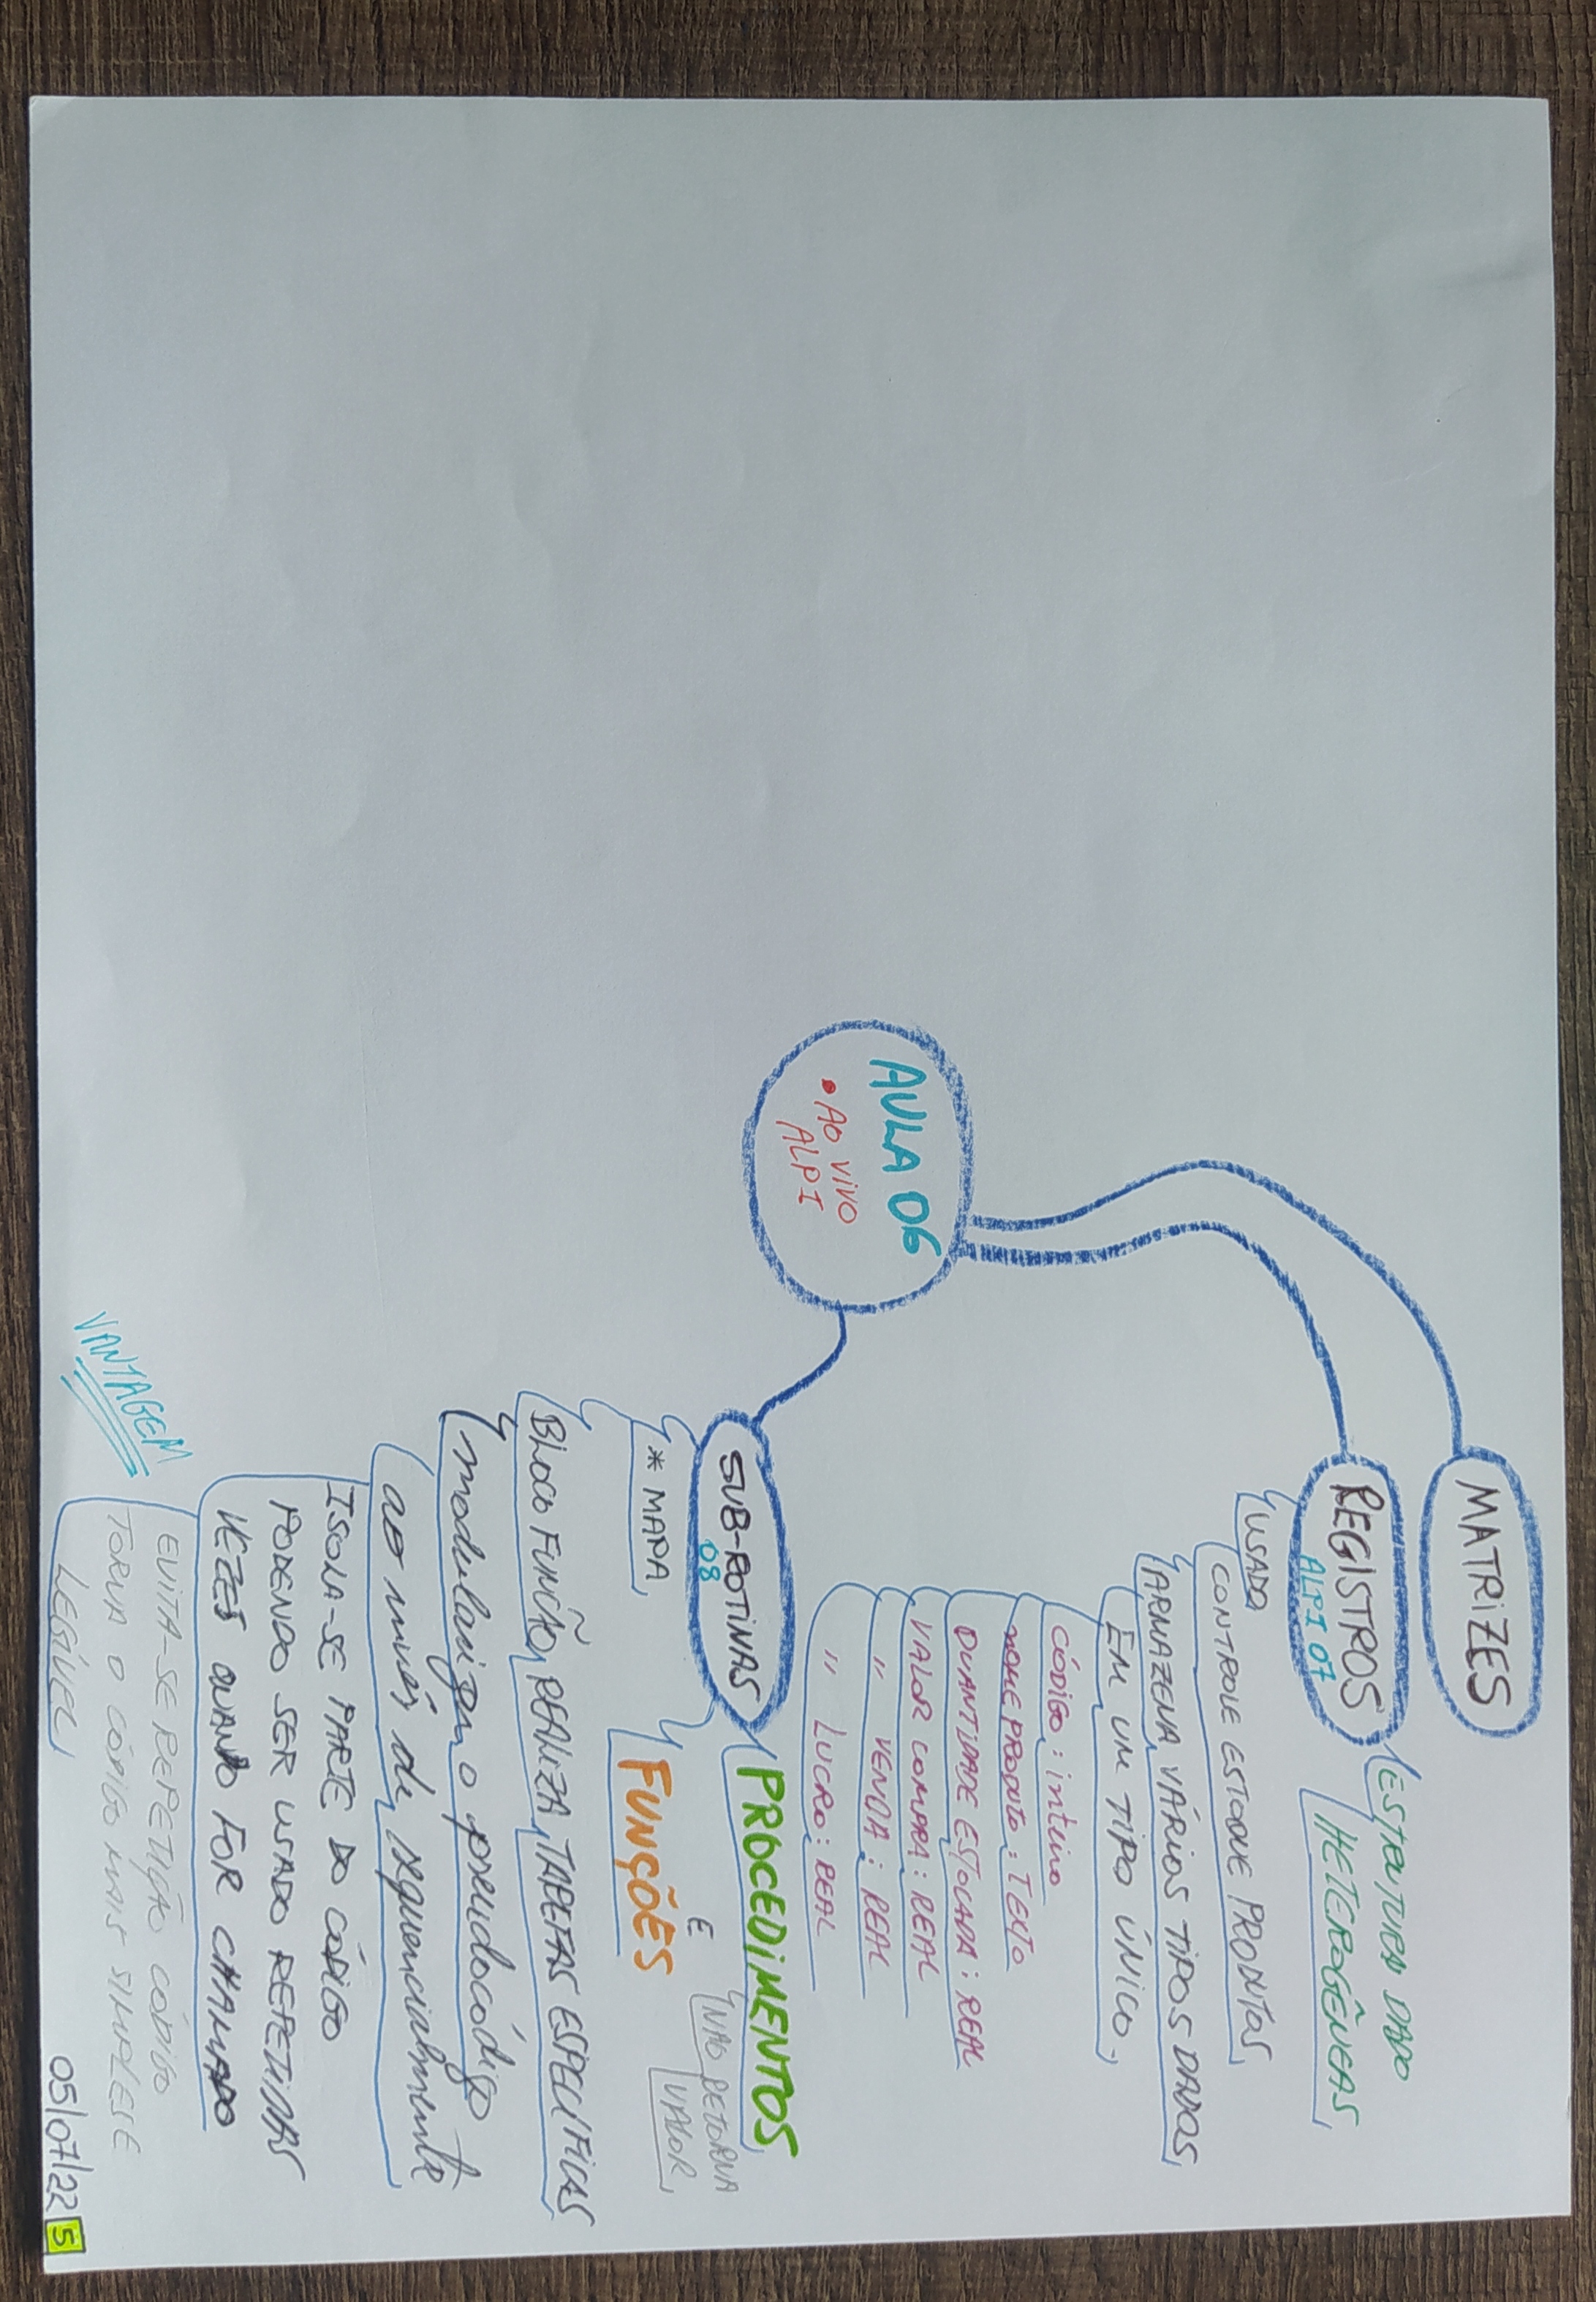 MATRIZES
REGISTROS
ALPI 07
ESTRUTURA DADO
HETEROGÊNEAS
USADO
CONTROLE ESTOQUE PRODUTOS
ARMAZENA VÁRIOS TIPOS DADOS
EM UM TIPO ÚNICO.
CÓDIGO : inteiro
NOME PRODUTO : TEXTO
QUANTIDADE ESTOCADA : REAL
VALOR COMPRA : REAL
" VENDA : REAL
" LUCRO : REAL
AULA 06
• AO VIVO
ALPI
SUB-ROTINAS
08
PROCEDIMENTOS
NÃO RETORNA
VALOR
E
FUNÇÕES
* MAPA
BLOCO FUNCÃO REALIZA TAREFAS ESPECÍFICAS
modulariza o pseudocódigo
ao invés de sequencialmente
ISOLA-SE PARTE DO CÓDIGO
PODENDO SER USADO REPETIDAS
VEZES QUANDO FOR CHAMADO
VANTAGEM
EVITA-SE REPETIÇÃO CÓDIGO
TORNA O CÓDIGO MAIS SIMPLES E
LEGÍVEL
05/07/22 5